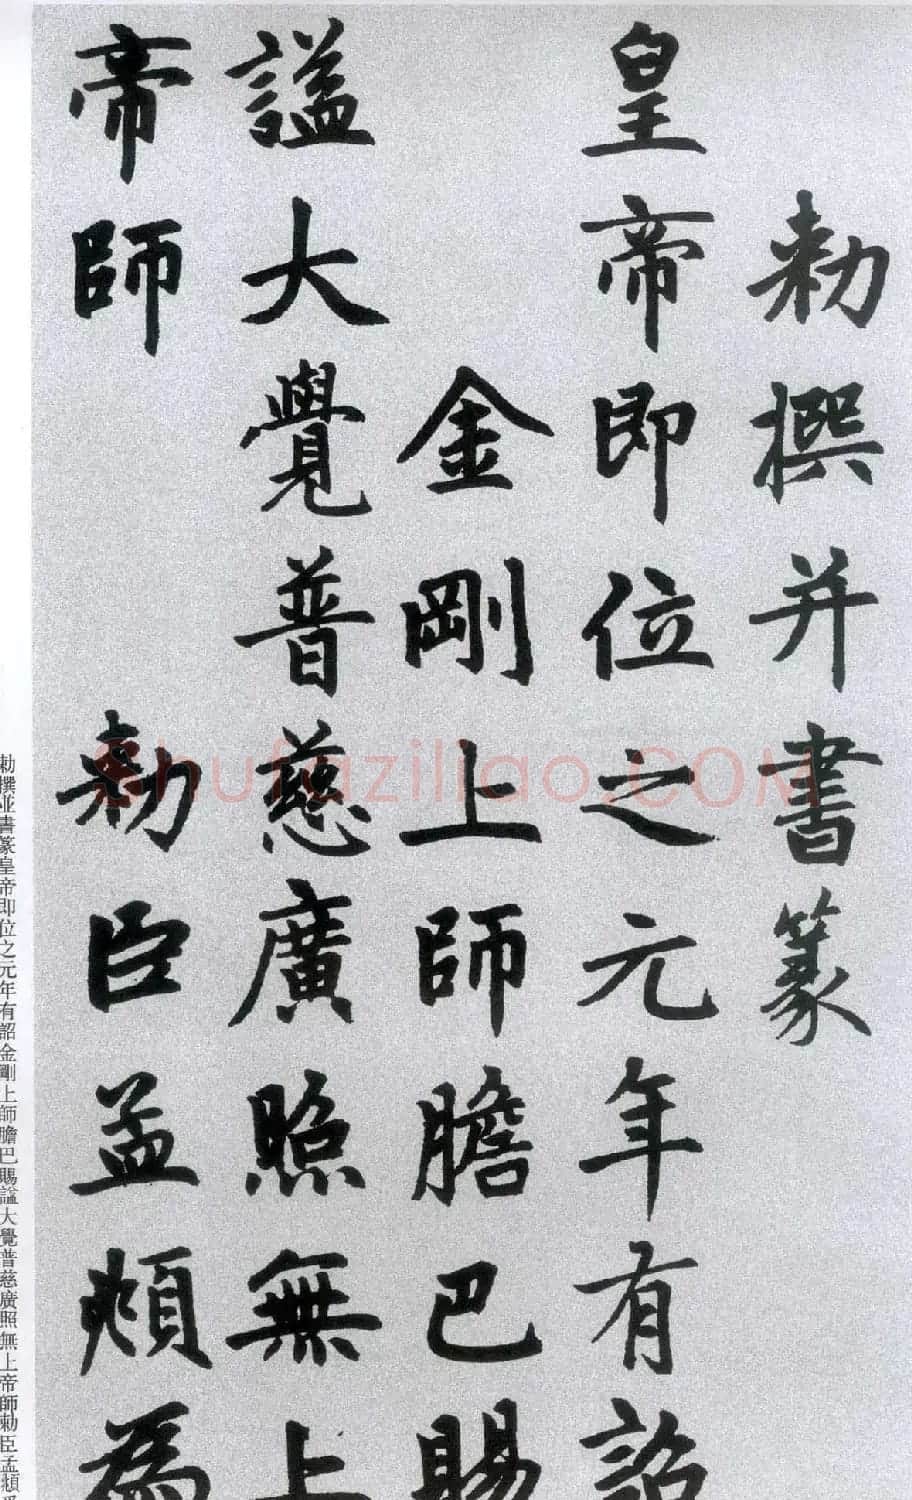 勅撰并書篆
皇帝即位之元年有詔
金剛上師膽巴賜
謚大覺普慈廣照無上
帝師 勅臣孟頫為
勅撰並書篆皇帝即位之元年有詔金剛上師膽巴賜謚大覺普慈廣照無上帝師勅臣孟頫爲
Shufaziliao.COM